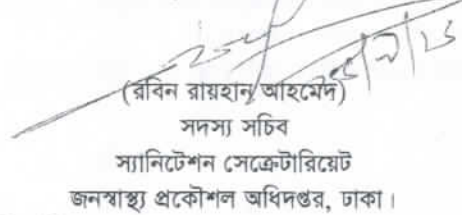 (রবিন রায়হান আহমেদ)
সদস্য সচিব
স্যানিটেশন সেক্রেটারিয়েট
জনস্বাস্থ্য প্রকৌশল অধিদপ্তর, ঢাকা।